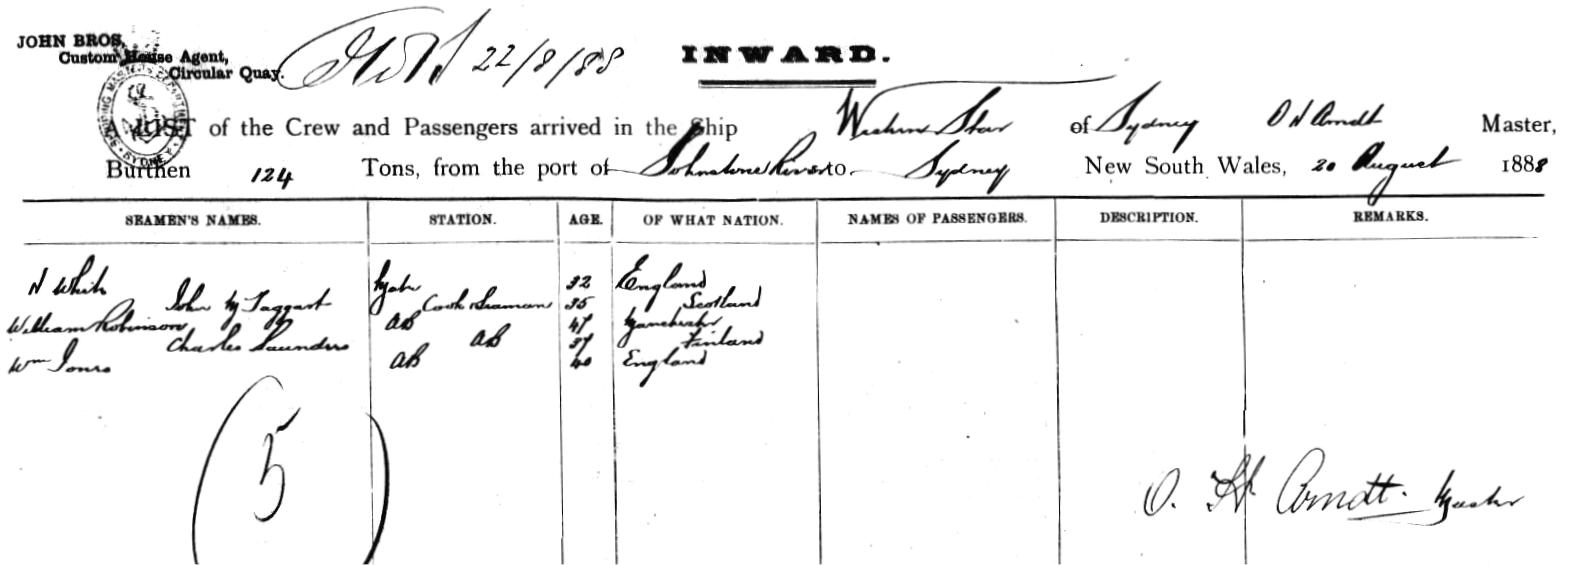 JOHN BROS,
Custom House Agent,
Circular Quay.
22/8/88
INWARD.
A LIST of the Crew and Passengers arrived in the Ship Western Star of Sydney O H Arndt Master,
Burthen 124 Tons, from the port of Johnstone River to Sydney New South Wales, 20 August 1888
SEAMEN'S NAMES. STATION. AGE. OF WHAT NATION. NAMES OF PASSENGERS. DESCRIPTION. REMARKS.
N White Mate 32 England
John McTaggart Cook & Seaman 35 Scotland
William Robinson AB 47 Manchester
Charles Saunders AB 37 Finland
Wm Jones AB 40 England
5
O. H. Arndt. Master